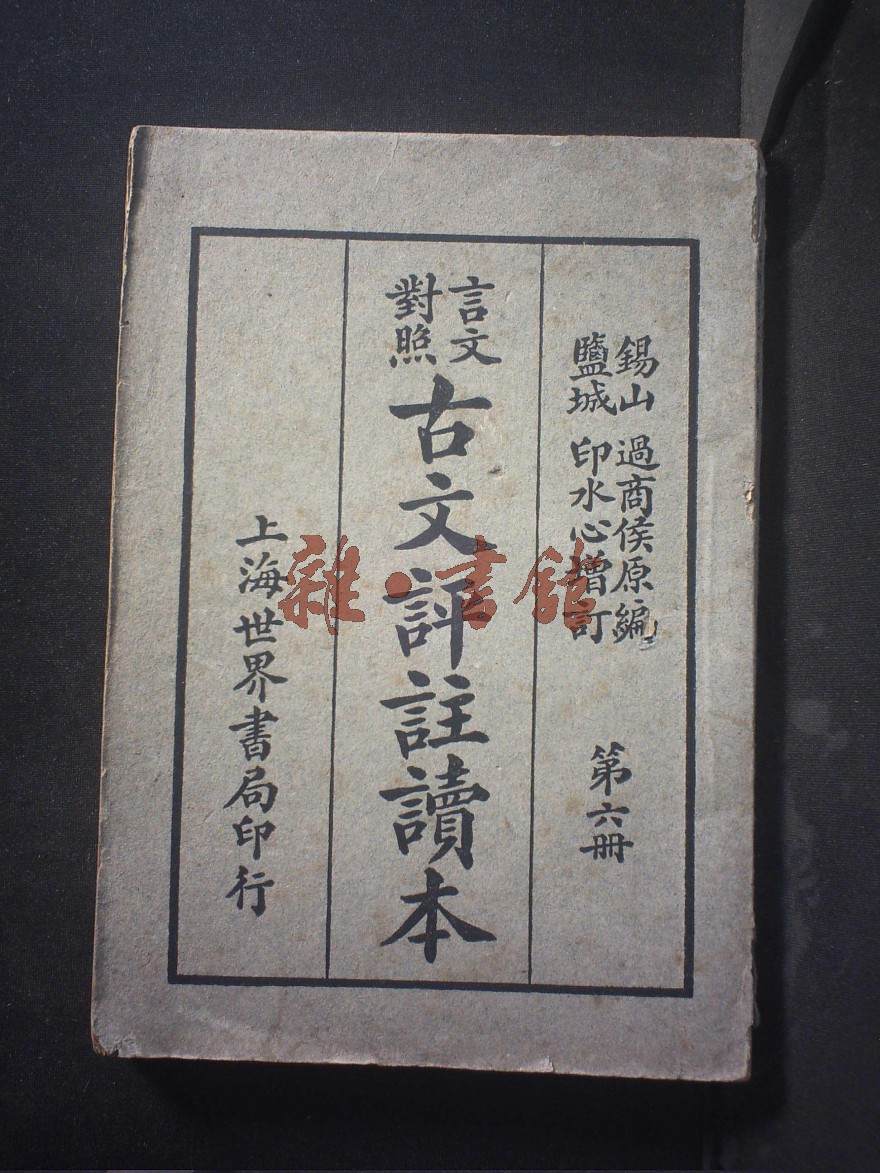 錫山 過商侯原編
鹽城 印水心增訂
第六冊
言文
對照
古文評註讀本
上海世界書局印行
雜·書館